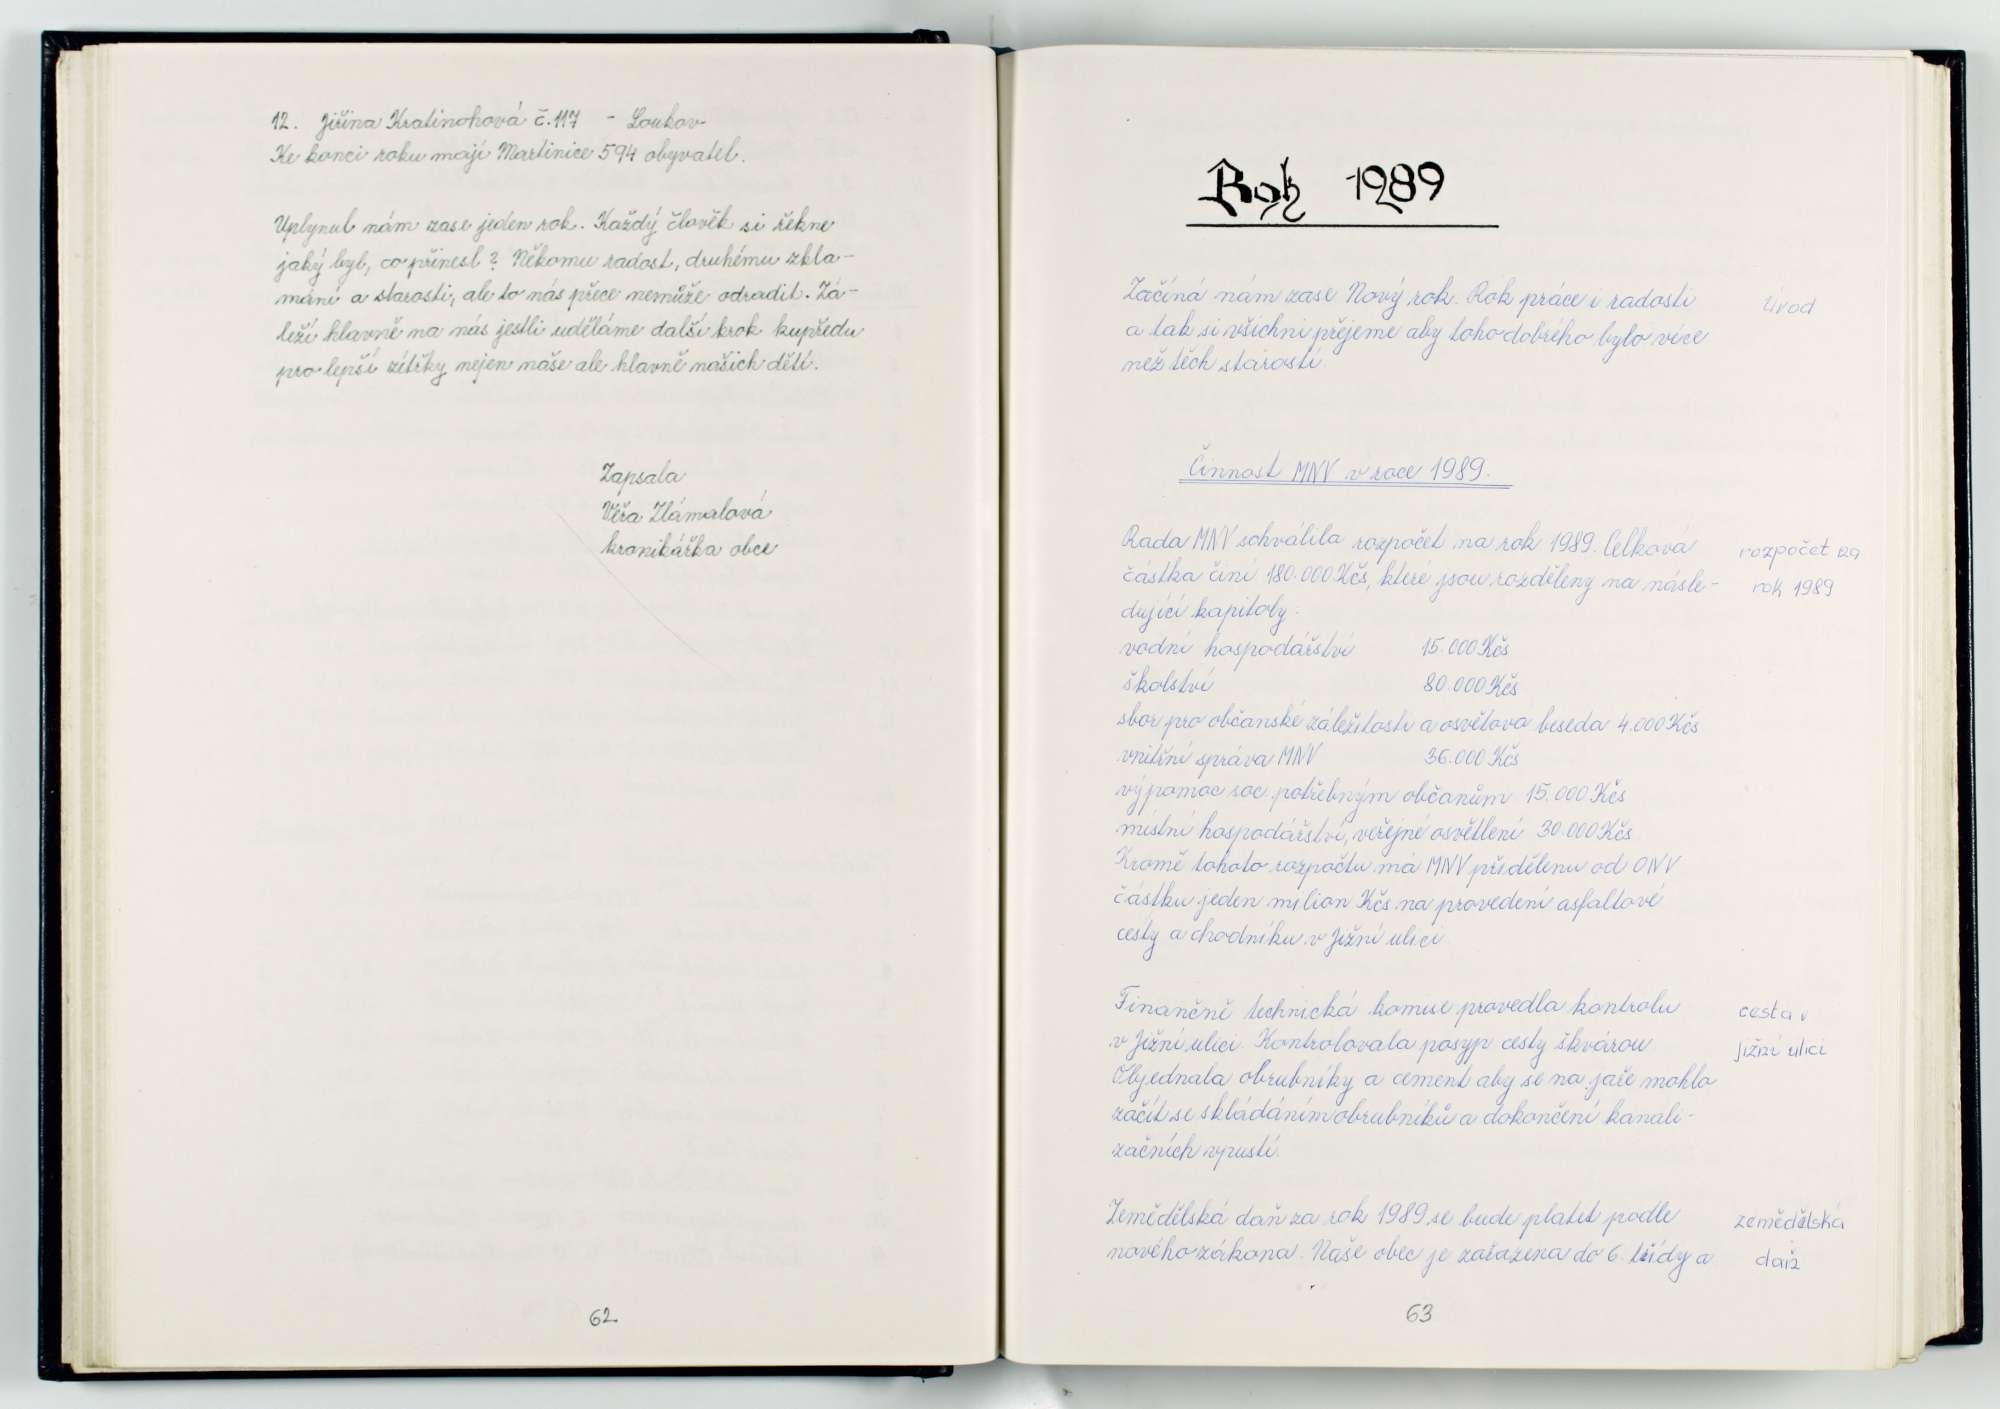 12. Jiřina Kratinohová č.117 - Loukov
Ke konci roku mají Martinice 594 obyvatel.
Uplynul nám zase jeden rok. Každý člověk si řekne
jaký byl, co přinesl? Někomu radost, druhému zkla-
mání a starosti, ale to nás přece nemůže odradit. Zá-
leží hlavně na nás jestli uděláme další krok kupředu
pro lepší zítřky nejen naše ale hlavně našich dětí.
Zapsala
Věra Zlámalová
kronikářka obce
62
Rok 1989
Začíná nám zase Nový rok. Rok práce i radosti
a tak si všichni přejeme aby toho dobrého bylo více
než těch starostí.
úvod
Činnost MNV v roce 1989.
Rada MNV schválila rozpočet na rok 1989. Celková
částka činí 180.000 Kčs, které jsou rozděleny na násle-
dující kapitoly:
rozpočet na
rok 1989
vodní hospodářství 15.000 Kčs
školství 80.000 Kčs
sbor pro občanské záležitosti a osvětová beseda 4.000 Kčs
vnitřní správa MNV 36.000 Kčs
výpomoc soc. potřebným občanům 15.000 Kčs
místní hospodářství, veřejné osvětlení 30.000 Kčs.
Kromě tohoto rozpočtu má MNV přidělenu od ONV
částku jeden milion Kčs na provedení asfaltové
cesty a chodníku v Jižní ulici.
Finančně technická komise provedla kontrolu
v Jižní ulici. Kontrolovala posyp cesty škvárou.
Objednala obrubníky a cement aby se na jaře mohlo
začít se skládáním obrubníků a dokončení kanali-
začních vpustí.
cesta v
Jižní ulici
Zemědělská daň za rok 1989 se bude platit podle
nového zákona. Naše obec je zařazena do 6. třídy a
zemědělská
daň
63